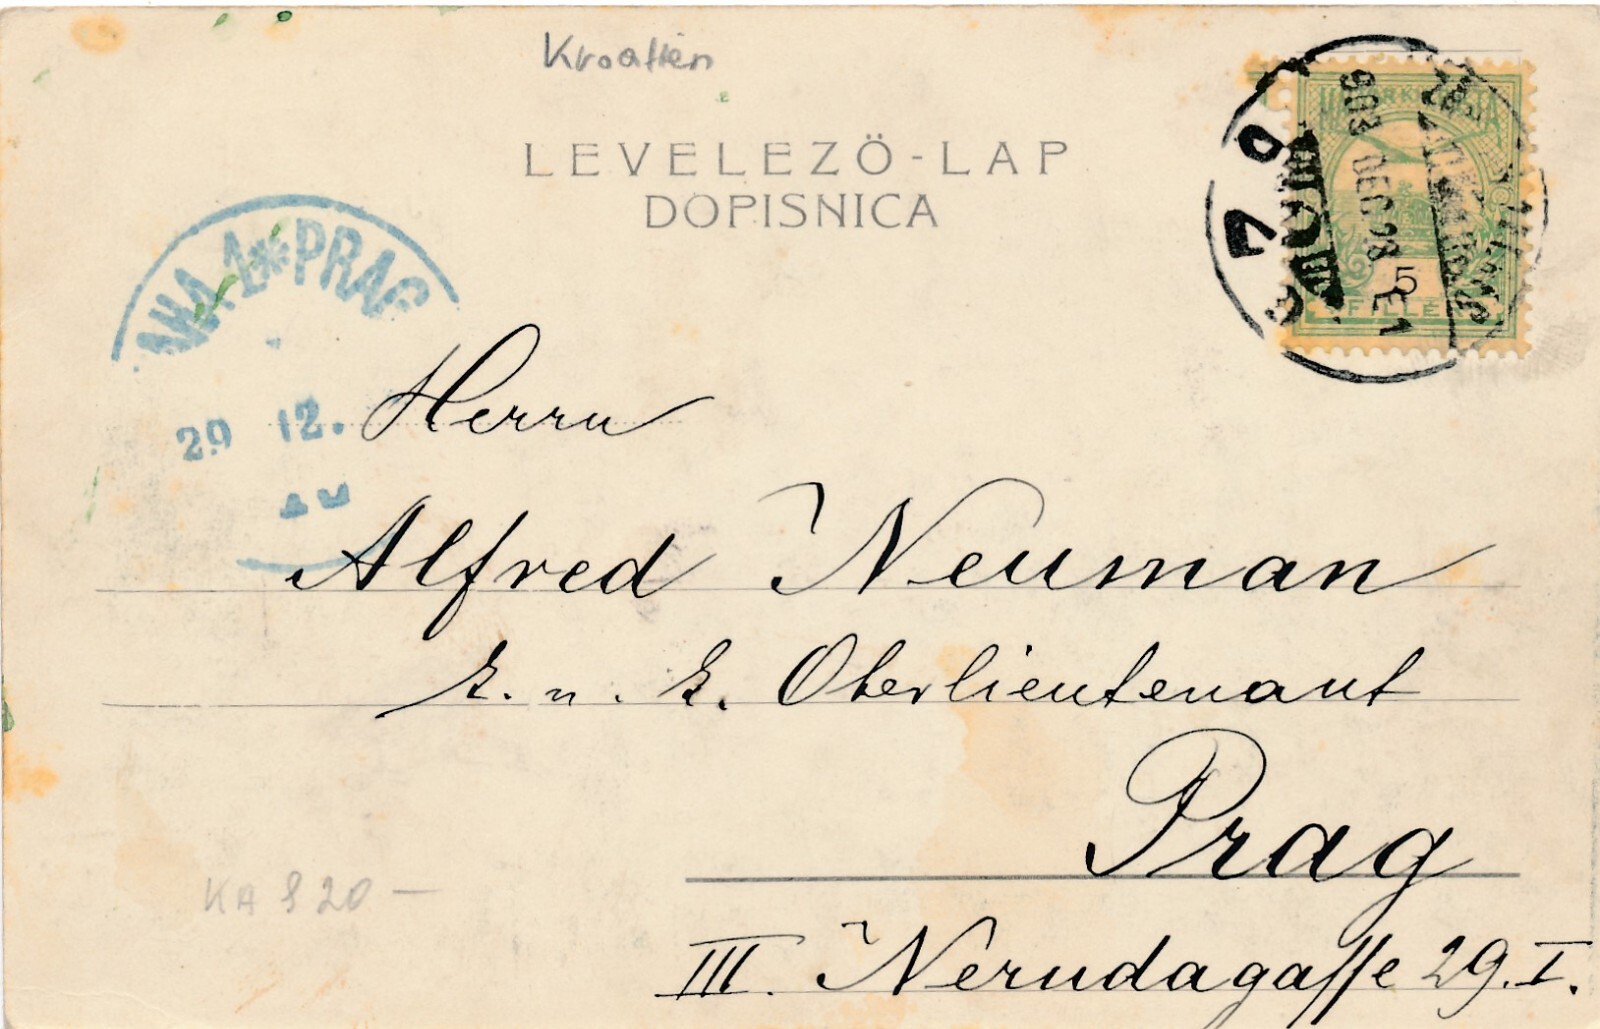 Kroatien
LEVELEZÖ-LAP
DOPISNICA
903 DEC 28
5
FILLÉR
1 * PRAG
29 12.
Herrn
Alfred Neuman
k. u. k. Oberlieutenant
Prag
III. Nerudagasse 29. I.
KA 820 —